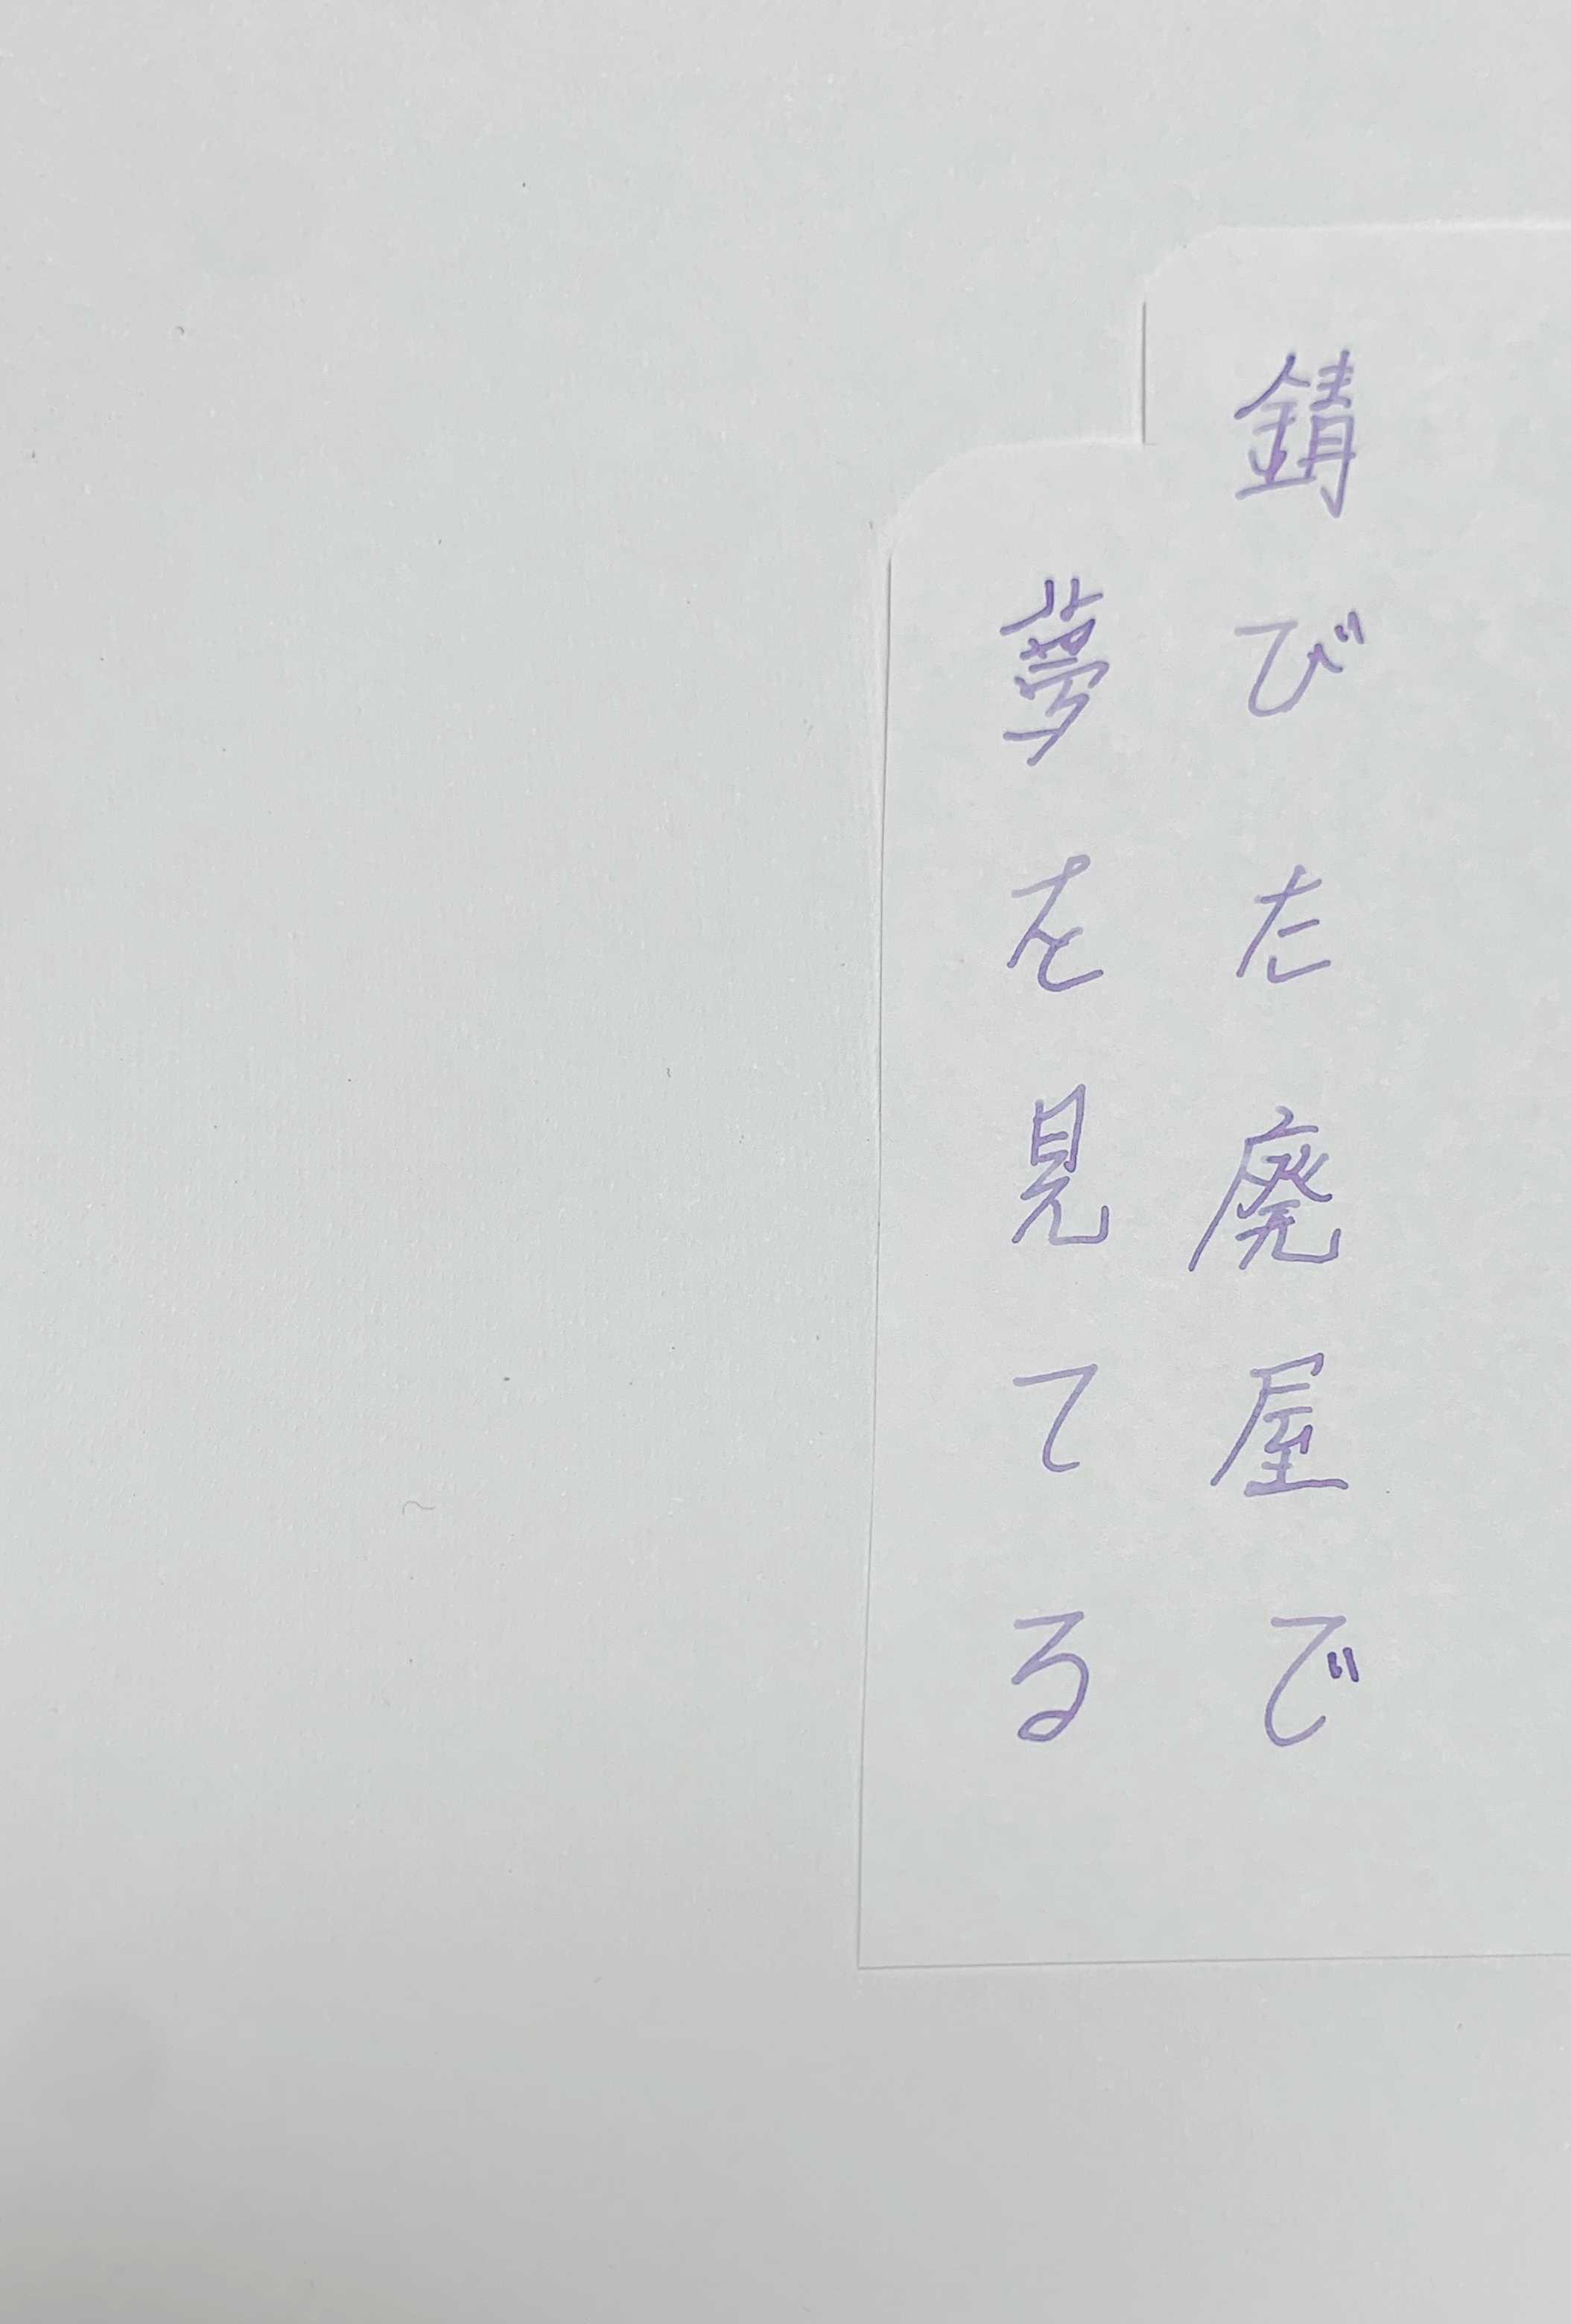 錆びた廃屋で
夢を見てる